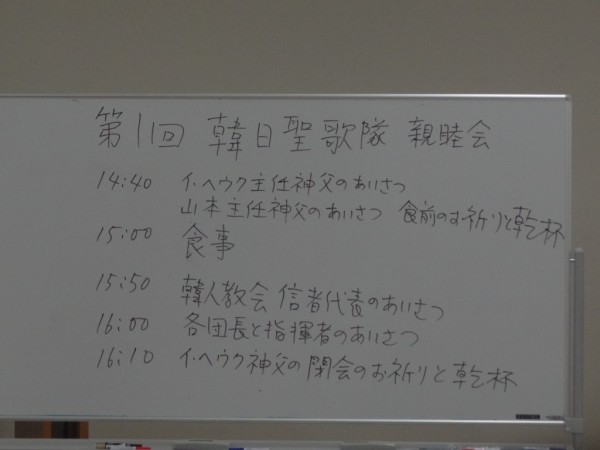 第11回 韓日聖歌隊 親睦会
14:40 イ・ヘウク主任神父のあいさつ
山本主任神父のあいさつ 食前のお祈りと乾杯
15:00 食事
15:50 韓人教会 信者代表のあいさつ
16:00 各団長と指揮者のあいさつ
16:10 イ・ヘウク神父の閉会のお祈りと乾杯